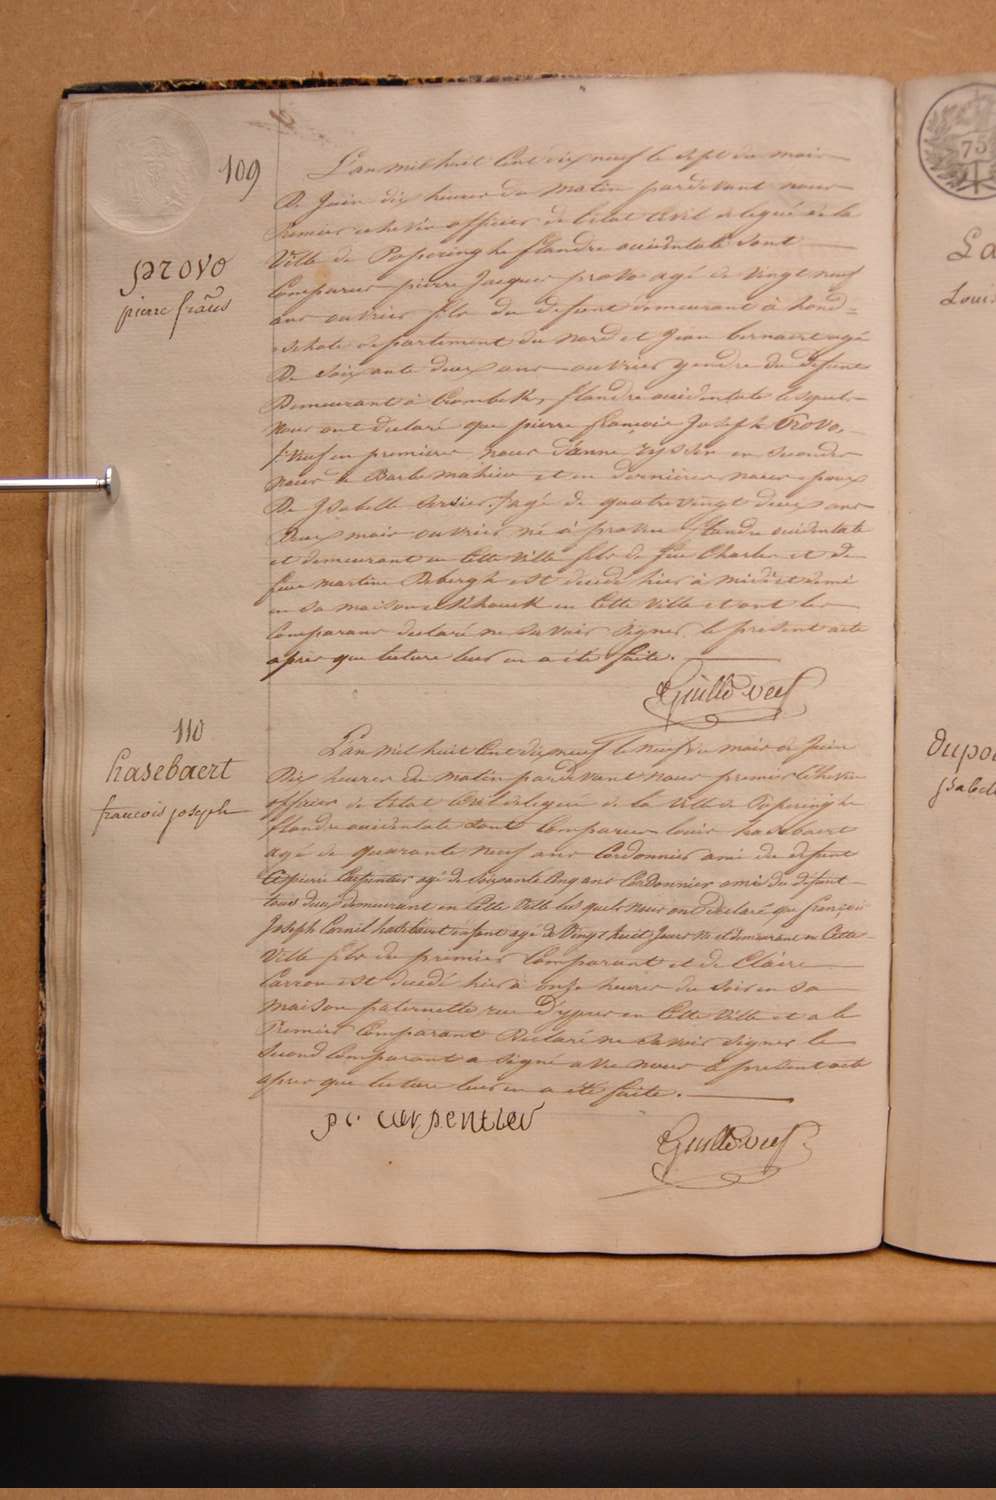 109
provo
pierre frañs
L'an mil huit Cent dix neuf le sept du mois
De Juin dix heures du matin pardevant nous
Premier echevin officier de l'etat Civil delegué de la
Ville de Poperinghe flandre occidentale sont
Comparus pierre Jacques provo agé de vingt neuf
ans ouvrier fils du defunt demeurant à hond=
schote departement du nord et Jean bernaert agé
De soixante deux ans ouvrier gendre du defunt
Demeurant à Crombeke flandre occidentale lesquels
nous ont declaré que pierre françois Joseph Provo,
Veuf en premieres noces d'anne en secondes
noces de Barbe mahieu et en dernieres noces epoux
De Isabelle agé de quatre vingt deux ans
Deux mois ouvrier né à proven flandre occidentale
et demeurant en Cette Ville fils de feu Charles et de
feue martine Debergh est decedé hier à midi et demi
en sa maison en Cette Ville et ont les
Comparans declaré ne savoir signer le present acte
après que lecture leur en a été faite.
Guille veef
110
hasebaert
francois joseph
L'an mil huit Cent dix neuf le neuf du mois de Juin
Dix heures du matin pardevant nous premier Echevin
officier de l'etat Civil delegué de la Ville de Poperinghe
flandre occidentale sont Comparus louis hasebaert
agé de quarante neuf ans Cordonnier ami du defunt
et pierre Carpentier agé de soixante Cinq ans Cordonnier ami du defunt
tous deux demeurant en Cette Ville lesquels nous ont declaré que françois
Joseph Cornil hasebaert enfant agé de Vingt huit Jours né et demeurant en Cette
Ville fils du premier Comparant et de Claire
Carron est decedé hier à onze heures du soir en sa
maison paternelle rue D'ypres en Cette Ville et a le
Premier Comparant Declaré ne savoir signer le
Second Comparant a signé avec nous le present acte
apres que lecture leur en a été faite.
pc carpentier
Guille veef
75
La
Loui
dupo
ysabel